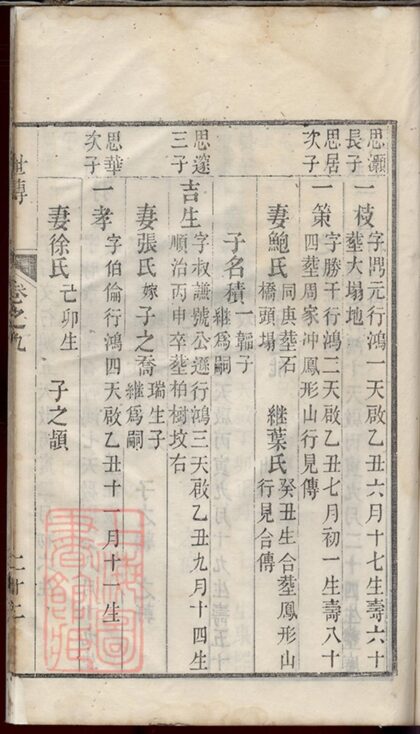 思灝長子
一枝
字閌元行鴻一天啟乙丑六月十七生壽六十
塟大塌地
思居次子
一策
字勝干行鴻二天啟乙丑七月初一生壽八十
四塟周家冲鳳形山行見傳
妻鮑氏
同庚塟石
橋頭塲
繼葉氏
癸丑生合塟鳳形山
行見合傳
子名積
一韓子
繼爲嗣
思邃三子
吉生
字叔謙號公遜行鴻三天啟乙丑九月十四生
順治丙申卒塟柏樹坟右
妻張氏
嫁
子之喬
瑞生子
繼爲嗣
思華次子
一孝
字伯倫行鴻四天啟乙丑十一月十一生
妻徐氏
己卯生
子之頴
世傳
卷之九
二十二
上海圖書館藏